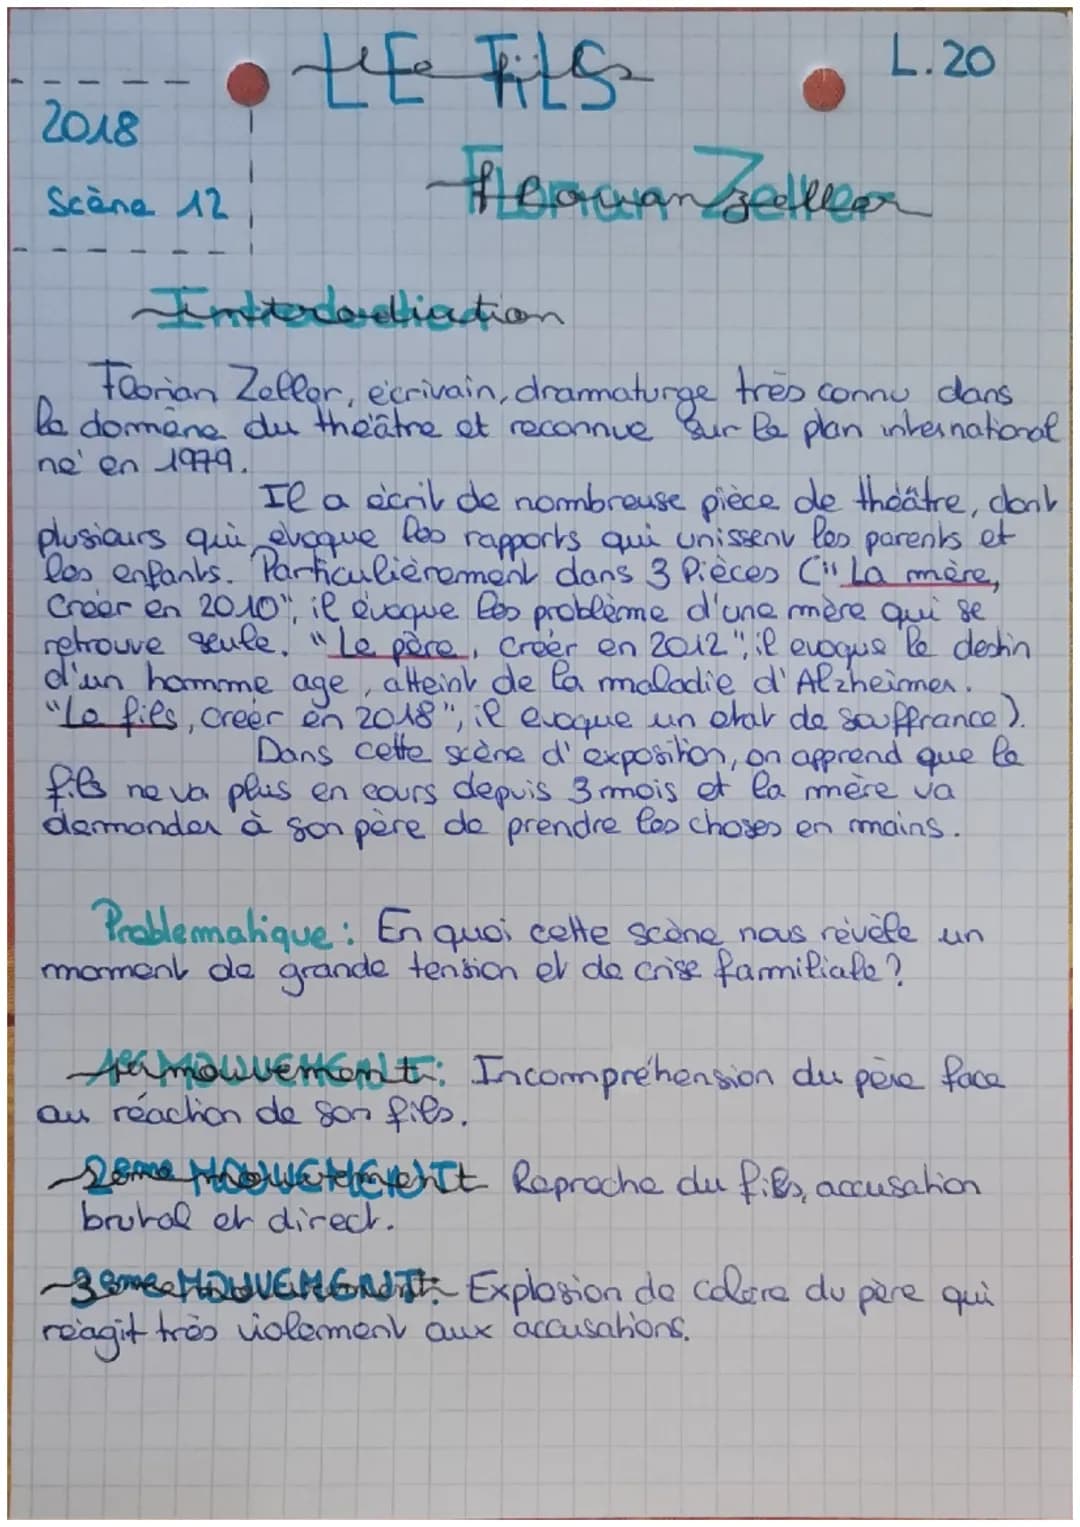 LE FILS
L.20
2018
Scène 12
Florian Zeller
Introduction
Florian Zeller, écrivain, drammaturge très connu dans
le domène du théâtre et reconnue sur le plan international
né en 1979.
Il a écrit de nombreuse pièce de théâtre, dont
plusieurs qui évoque les rapports qui unissent les parents et
les enfants. Particulièrement dans 3 Pièces ("La mère,
Créer en 2010", il évoque les problème d'une mère qui se
retrouve seule. "Le père, créer en 2012", il evoque le destin
d'un homme age, atteint de la maladie d'Alzheimer.
"Le fils, creer en 2018", il evoque un etat de souffrance).
Dans cette scène d'exposition, on apprend que le
fils ne va plus en cours depuis 3 mois et la mère va
demander à son père de prendre les choses en mains.
Problematique : En quoi cette scène nous révèle un
moment de grande tension et de crise familiale ?
1er MOUVEMENT : Incompréhension du père face
au réaction de son fils.
2ème MOUVEMENT Reproche du fils, accusation
brutal et direct.
3eme MOUVEMENT : Explosion de colère du père qui
réagit très violement aux accusations.